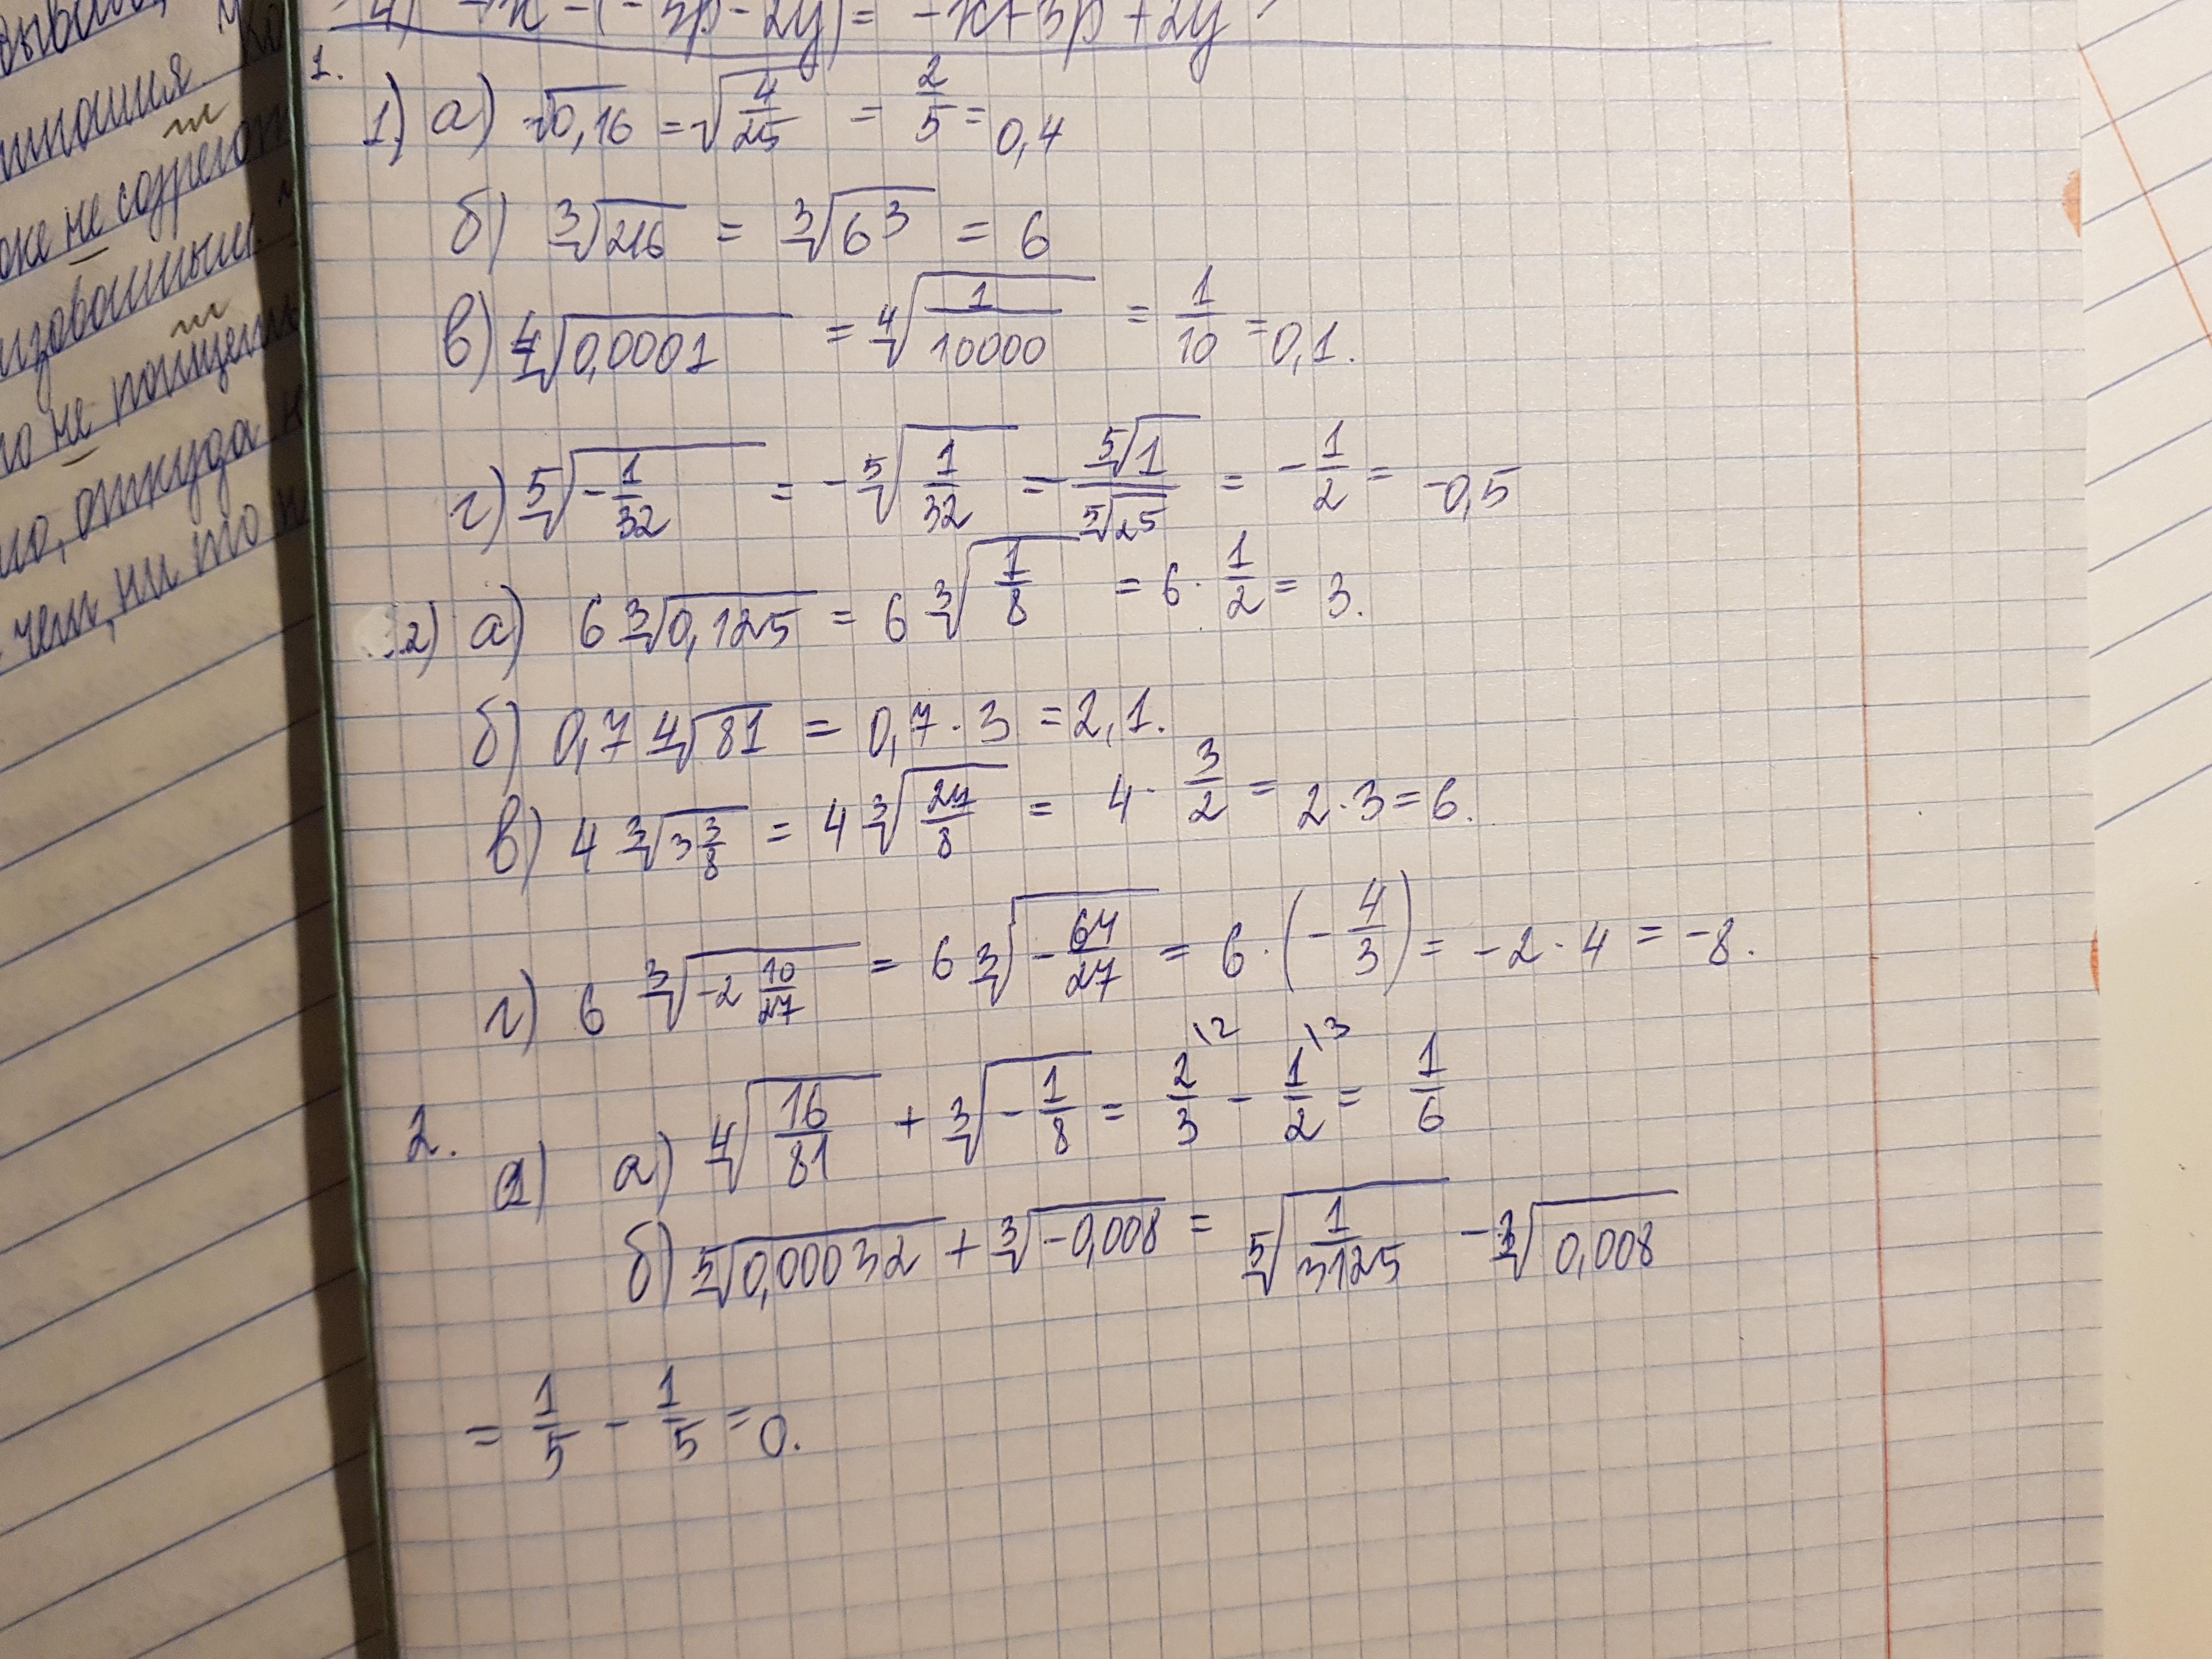 ываю,
тания. Ко
ш
оже не согрето
изованным.
ш
но не похищены
но, откуда н
чем, ни то н
4) -x-(-3p-2y)= -x+3p+2y
1.
1) а) √0,16 = √4/25 = 2/5 = 0,4
б) ³√216 = ³√6³ = 6
в) ⁴√0,0001 = ⁴√1/10000 = 1/10 = 0,1.
г) ⁵√-1/32 = -⁵√1/32 = -⁵√1/⁵√2⁵ = -1/2 = -0,5
2) а) 6 ³√0,125 = 6 ³√1/8 = 6 · 1/2 = 3.
б) 0,7 ⁴√81 = 0,7 · 3 = 2,1.
в) 4 ³√3 3/8 = 4 ³√27/8 = 4 · 3/2 = 2 · 3 = 6.
г) 6 ³√-2 10/27 = 6 ³√-64/27 = 6 · (-4/3) = -2 · 4 = -8.
2. 1) а) ⁴√16/81 + ³√-1/8 = 2/3 \2 - 1/2 \3 = 1/6
б) ⁵√0,00032 + ³√-0,008 = ⁵√1/3125 - ³√0,008
= 1/5 - 1/5 = 0.